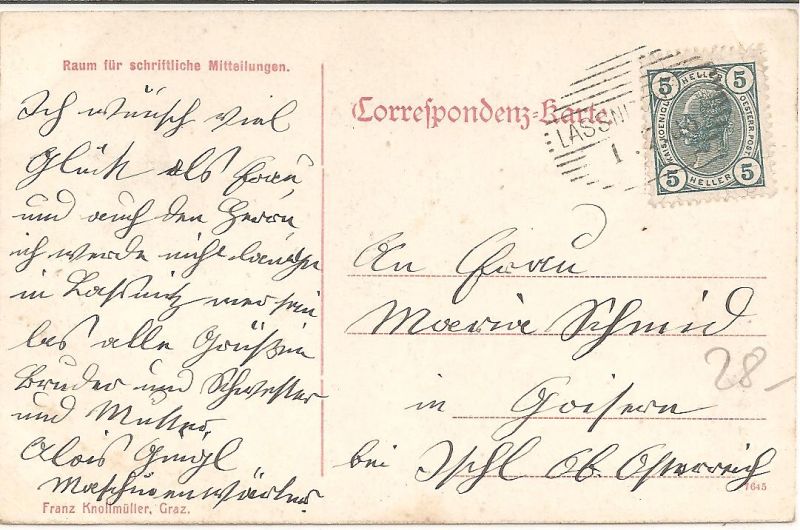 Raum für schriftliche Mitteilungen.
Ich wünsch viel
Glück als Frau
und auch den Herrn
ich werde nicht
in Lassnitz mer sein
las alle Grüßen
Bruder und Schwester
und Mutter
Alois
Maschinenwärter
Franz Knollmüller, Graz.
Correspondenz-Karte
LASSNIT
1
5 HELLER 5
KAIS. KOENIGL. OESTERR. POST
5 HELLER 5
An Frau
Maria Schmid
28-
in Goisern
bei Ischl Ob. Österreich
7645